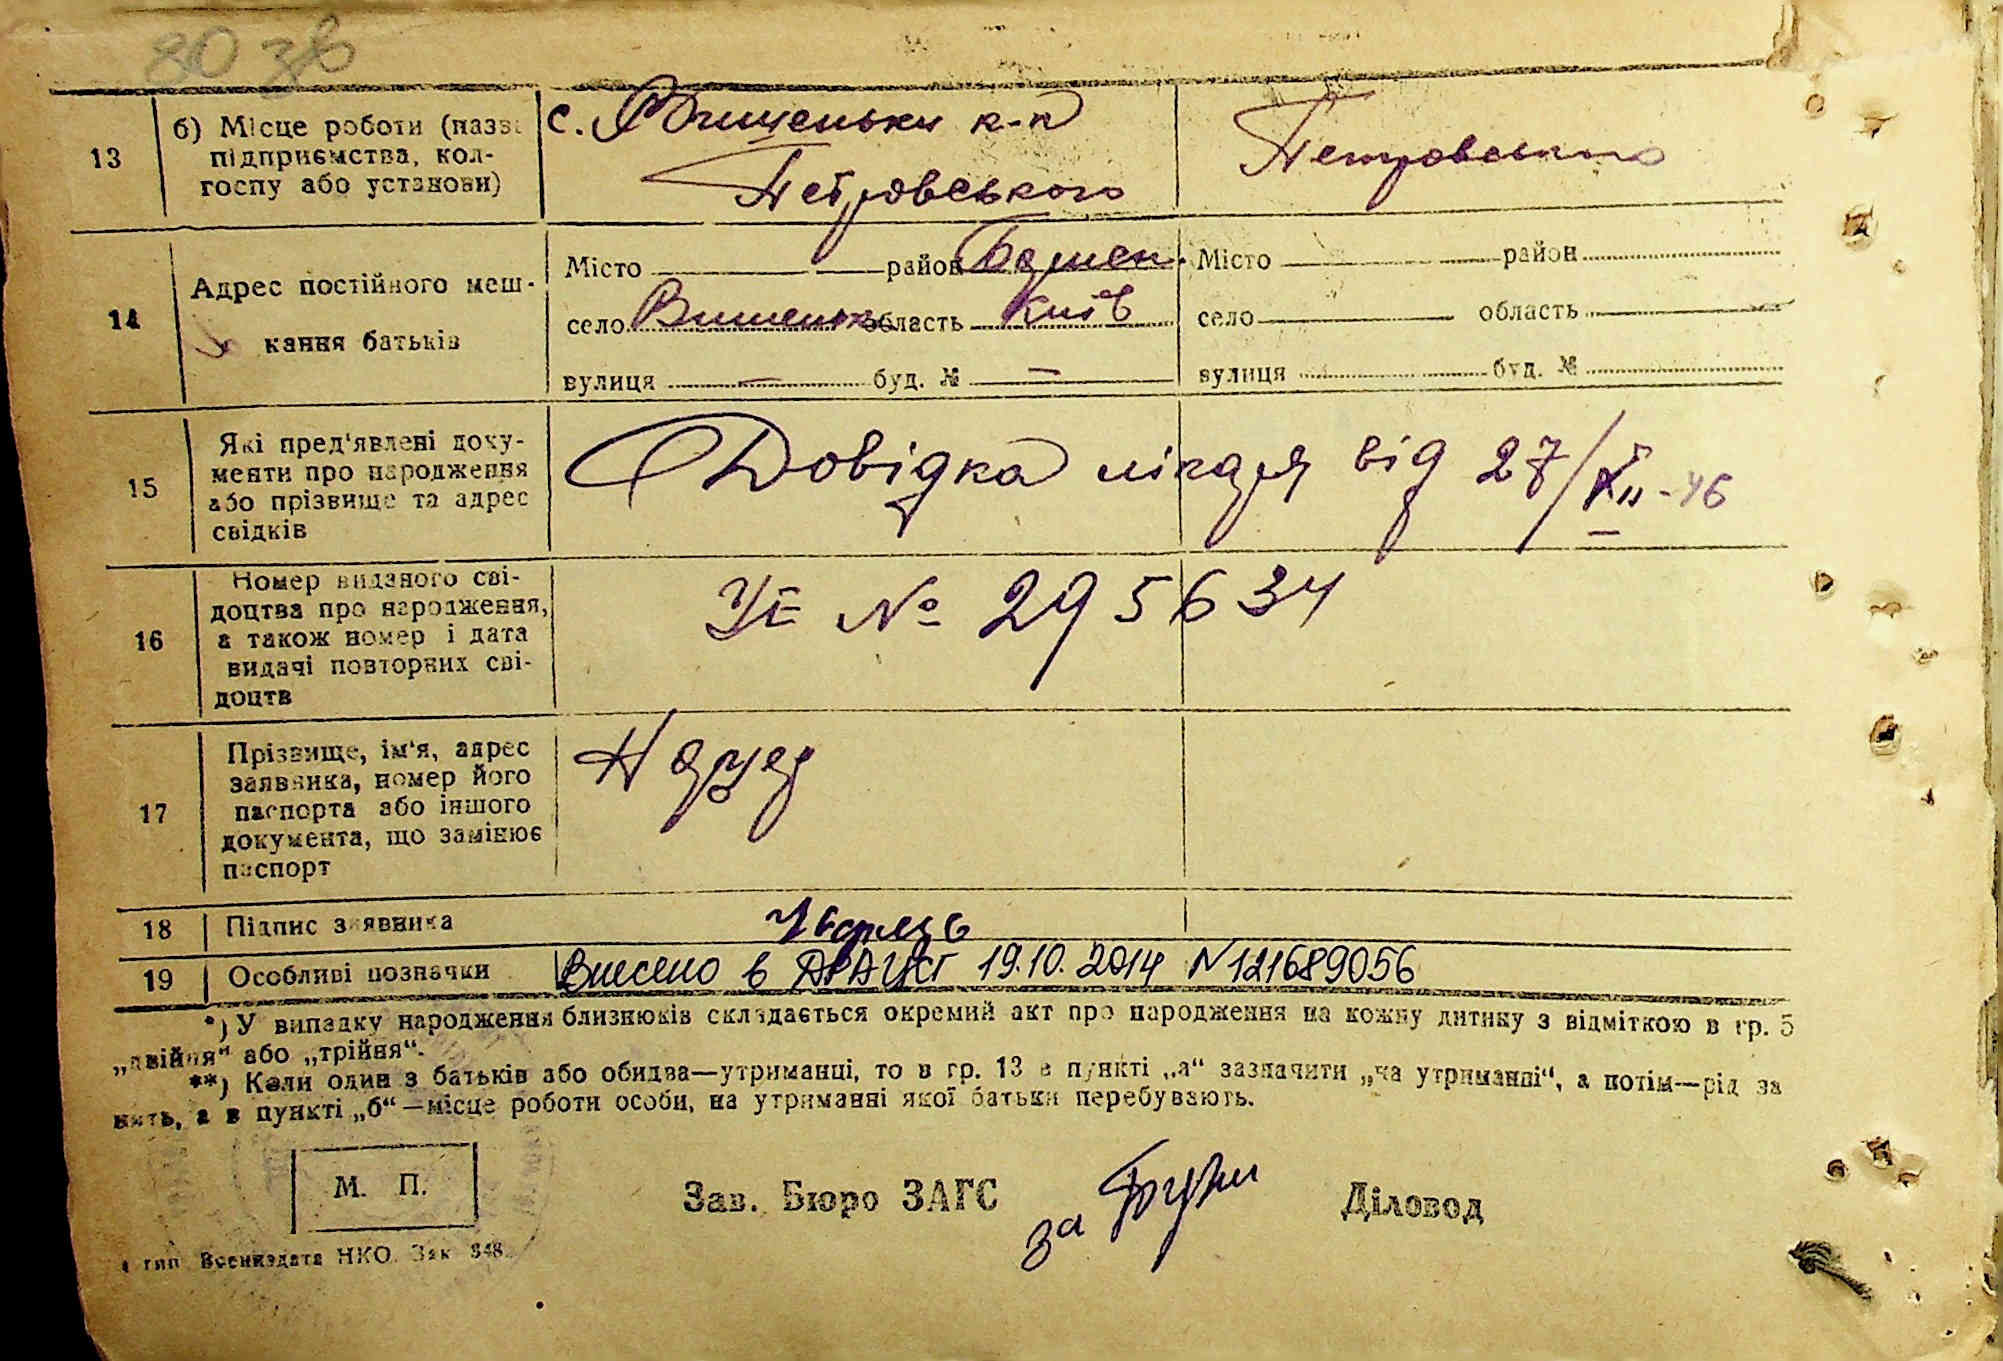 80 зв
13
б) Місце роботи (назва
підприємства, кол-
госпу або установи)
с. Вишеньки к-п
Петровського
Петровського
14
Адрес постійного меш-
кання батьків
Місто район
село Вишеньк область Київ
вулиця — буд. № —
Місто район
село область
вулиця буд. №
15
Які пред'явлені доку-
менти про народження
або прізвище та адрес
свідків
Довідка лікаря від 27/XII-46
16
Номер виданого сві-
доцтва про народження,
а також номер і дата
видачі повторних сві-
доцтв
УЕ № 295634
17
Прізвище, ім'я, адрес
заявника, номер його
паспорта або іншого
документа, що замінює
паспорт
18 Підпис заявника
19 Особливі позначки Внесено в ДРАЦСГ 19.10.2014 N121689056
*) У випадку народження близнюків складається окремий акт про народження на кожну дитину з відміткою в гр. 5
„двійня“ або „трійня“.
**) Коли один з батьків або обидва—утриманці, то в гр. 13 в пункті „а“ зазначити „на утриманні“, а потім—рід за
нять, а в пункті „б“—місце роботи особи, на утриманні якої батьки перебувають.
М. П.
Зав. Бюро ЗАГС за Діловод
тип Воениздата НКО. Зак 348